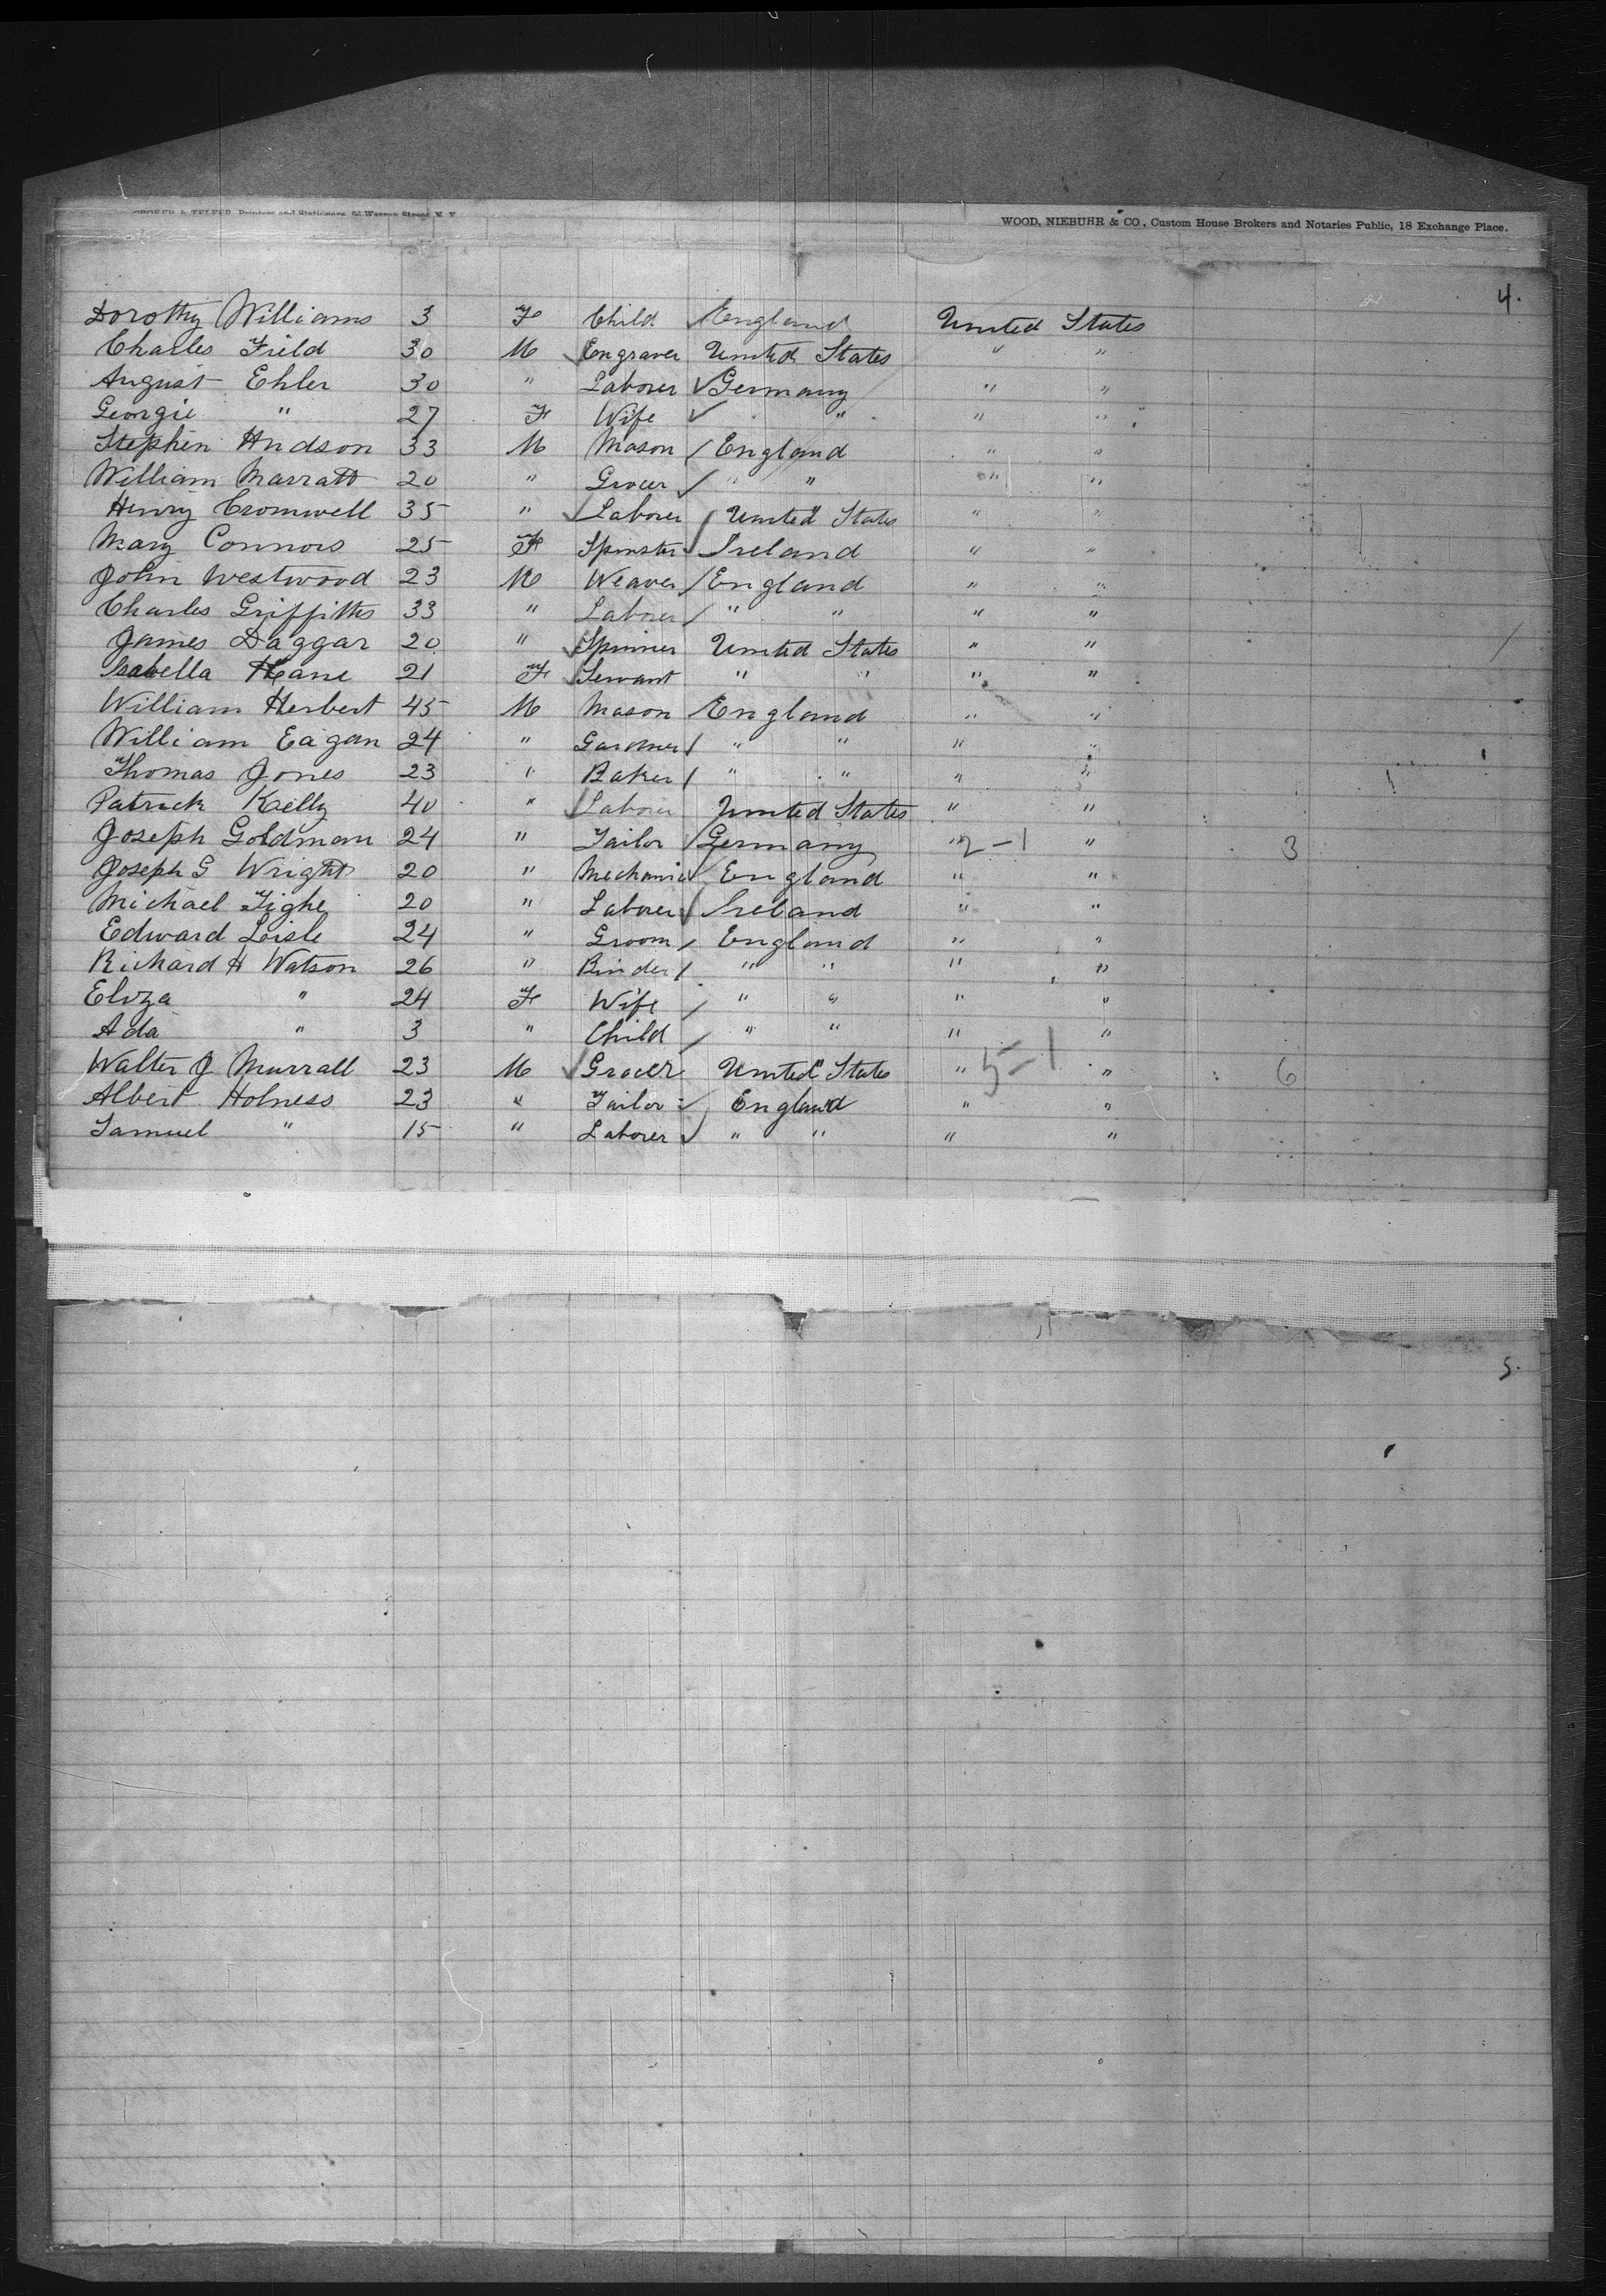 CROKER & TELFER, Printers and Stationers, 94 Warren Street, N. Y.
WOOD, NIEBUHR & CO., Custom House Brokers and Notaries Public, 18 Exchange Place.
4.
Dorothy Williams 3 F Child England United States
Charles Field 30 M Engraver United States " "
August Ehler 30 " Laborer Germany " "
Georgie " 27 F Wife " " "
Stephen Hudson 33 M Mason England " "
William Marratt 20 " Grocer " " " "
Henry Cromwell 35 " Laborer United States " "
Mary Connors 25 F Spinster Ireland " "
John Westwood 23 M Weaver England " "
Charles Griffiths 33 " Laborer " " " "
James Daggar 20 " Spinner United States " "
Isabella Kane 21 F Servant " " " "
William Herbert 45 M Mason England " "
William Eagan 24 " Gardner " " " "
Thomas Jones 23 " Baker " " " "
Patrick Kelly 40 " Laborer United States " "
Joseph Goldman 24 " Tailor Germany " 2-1 " 3
Joseph G Wright 20 " Mechanic England " "
Michael Tighe 20 " Laborer Ireland " "
Edward Loisle 24 " Groom England " "
Richard H Watson 26 " Binder " " " "
Eliza " 24 F Wife " " " "
Ada " 3 " Child " " " "
Walter J Murrall 23 M Grocer United States " 5-1 " 6
Albert Holness 23 " Tailor England " "
Samuel " 15 " Laborer " " " "
5.